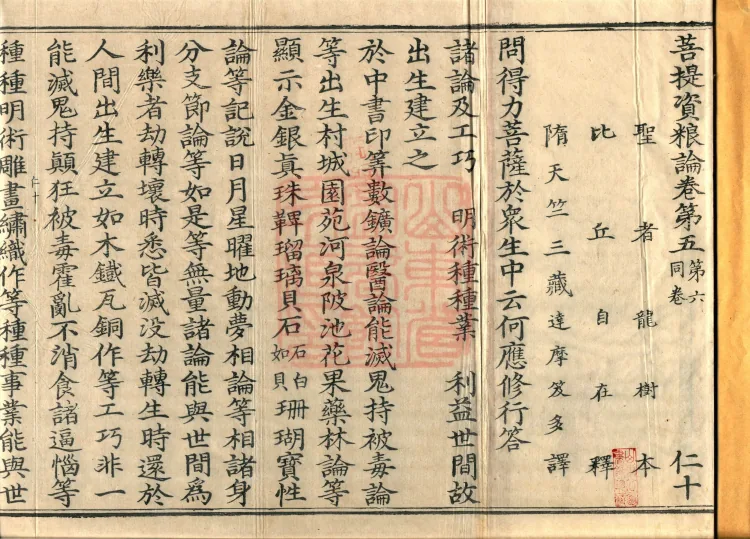 菩提資粮論卷第五 第六同卷 仁十
聖者龍樹本
比丘自在釋
隋天竺三藏達摩笈多譯
問得力菩薩於衆生中云何應修行答
諸論及工巧 明術種種業 利益世間故
出生建立之
於中書印筭數鑛論醫論能滅鬼持被毒論
等出生村城園苑河泉陂池花果藥林論等
顯示金銀真珠鞞瑠璃貝石石白如貝珊瑚寶性
論等記說日月星曜地動夢相論等相諸身
分支節論等如是等無量諸論能與世間爲
利樂者劫轉壞時悉皆滅没劫轉生時還於
人間出生建立如木鐵瓦銅作等工巧非一
能滅鬼持顛狂被毒霍亂不消食諸逼惱等
種種明術雕畫繡織作等種種事業能與世
仁十